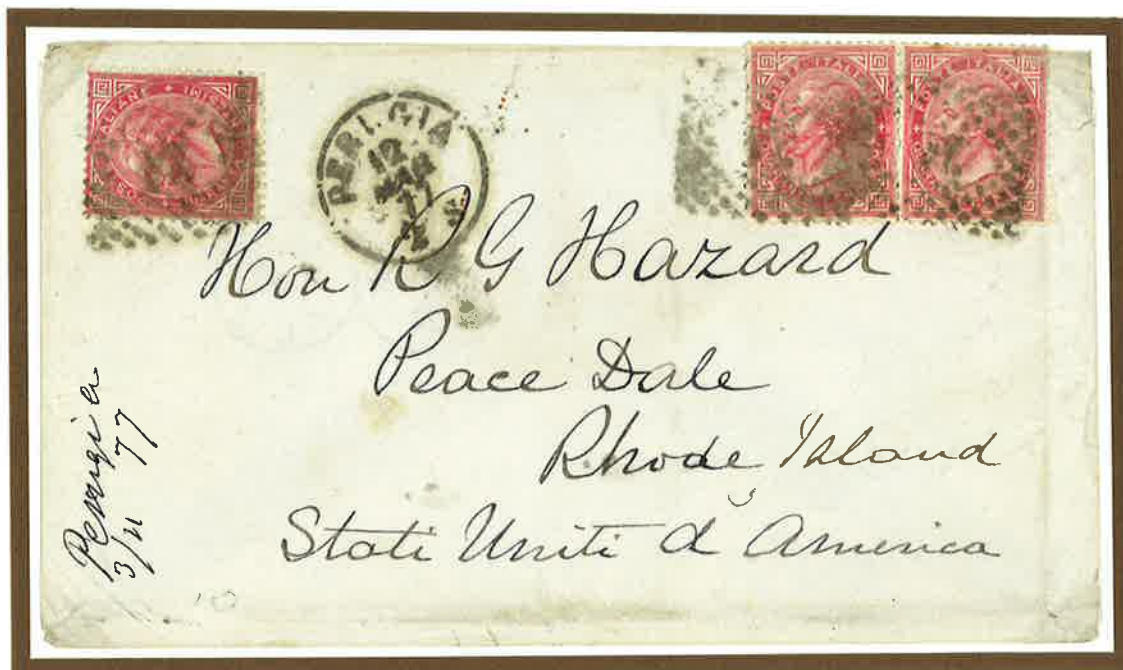 PERUGIA
12
MAR
77
Hon R G Hazard
Peace Dale
Rhode Island
Stati Uniti d America
Perugia
3/11 77